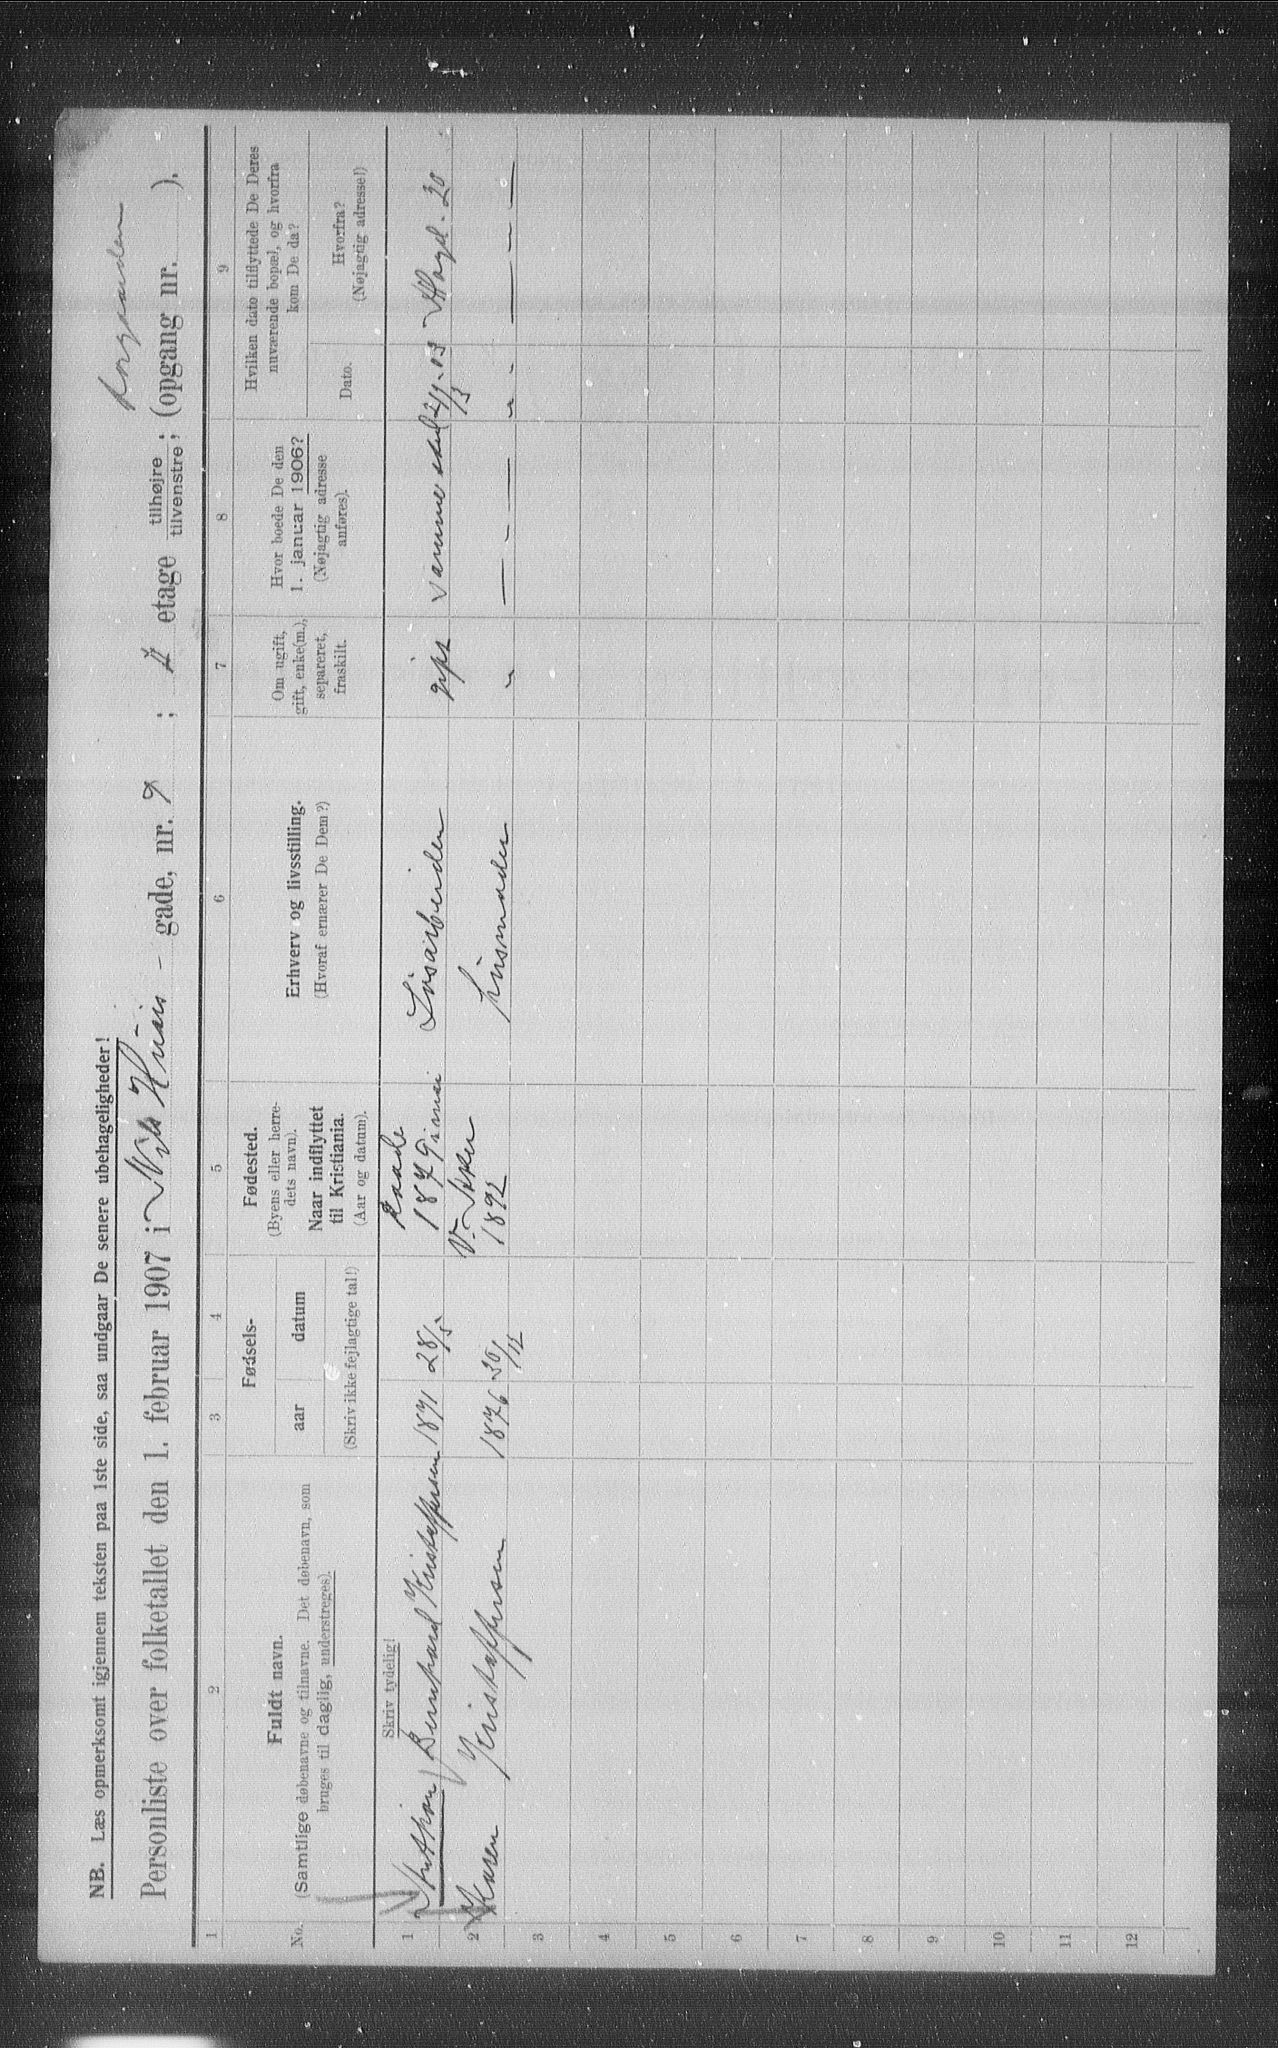 NB. Læs opmerksomt igjennem teksten paa 1ste side, saa undgaar De senere ubehageligheder!
Forgaarden
Personliste over folketallet den 1. februar 1907 i Nils Huus - gade, nr. 9 ; II etage tilhøjre; tilvenstre; (opgang nr. ).
1 2 3 4 5 6 7 8 9
No.
Fuldt navn.
(Samtlige døbenavne og tilnavne. Det døbenavn, som
bruges til daglig, understreges).
Skriv tydelig!
Fødsels-
aar datum
(Skriv ikke fejlagtige tal!)
Fødested.
(Byens eller herre-
dets navn).
Naar indflyttet
til Kristiania.
(Aar og datum).
Erhverv og livsstilling.
(Hvoraf ernærer De Dem?)
Om ugift,
gift, enke(m.),
separeret,
fraskilt.
Hvor boede De den
1. januar 1906?
(Nøjagtig adresse
anføres).
Hvilken dato tilflyttede De Deres
nuværende bopæl, og hvorfra
kom De da?
Dato.
Hvorfra?
(Nøjagtig adresse!)
1 Bernhard Kristoffersen 1871 28/5 Raade 1879 Løsarbeider gift samme sted
2 Karen Kristoffersen 1876 30/11 V. Aker 1892 Husmoder " — " —
3
4
5
6
7
8
9
10
11
12